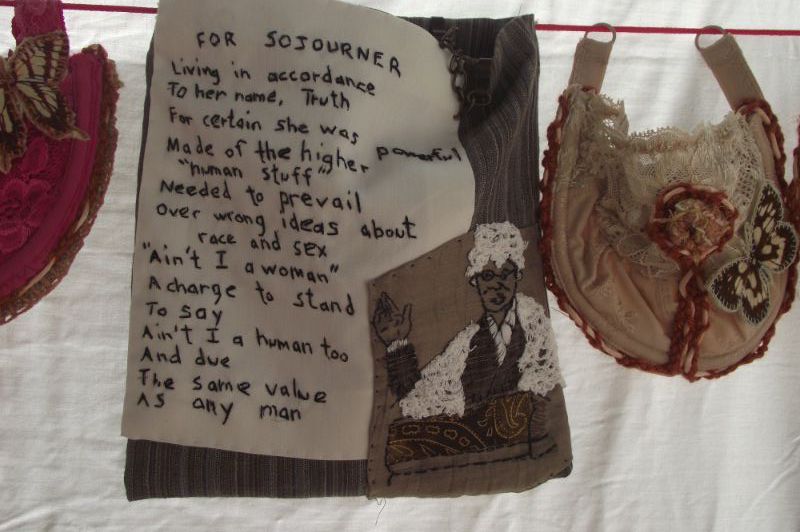 FOR SOJOURNER
Living in accordance
To her name, Truth
For certain she was
Made of the higher powerful
"human stuff"
Needed to prevail
Over wrong ideas about
race and sex
"Ain't I a woman"
A charge to stand
To say
Ain't I a human too
And due
The same value
As any man